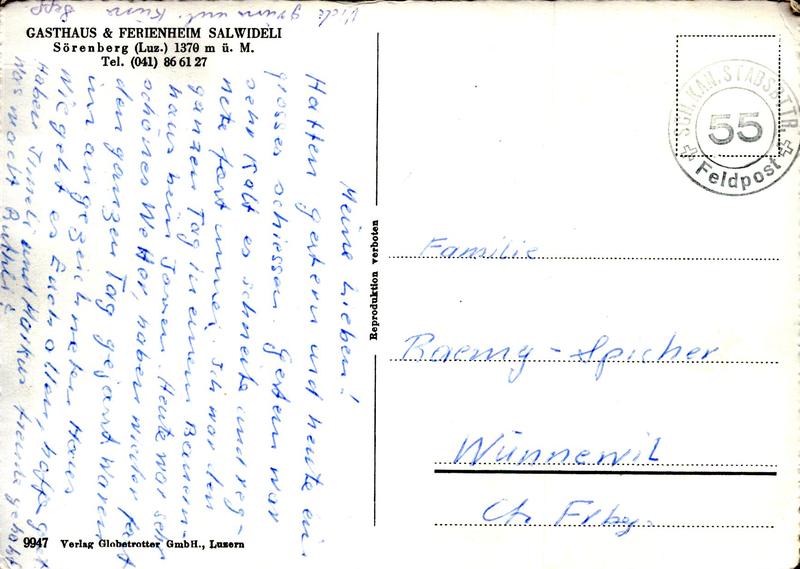 GASTHAUS & FERIENHEIM SALWIDELI
Sörenberg (Luz.) 1370 m ü. M.
Tel. (041) 86 61 27
Meine Lieben!
Hatten gestern und heute ein
grosses schiessen. Gestern war
sehr kalt es schneite und reg-
nete fast immer. Ich war den
ganzen Tag in einem Bauern-
haus beim Jassen. Heute war sehr
schönes Wetter, haben wieder fast
den ganzen Tag gejasst waren
im angezeichneten Haus
wie geht es Euch allen, hoffe gut
Haben und Markus Freude gehabt
was macht Ruthli?
Viele
Sepp
Reproduktion verboten
SCH. KAN. STABSBTTR.
55
Feldpost
Familie
Raemy-Spicher
Wünnewil
Ct. Frbg.
9947 Verlag Globetrotter GmbH., Luzern